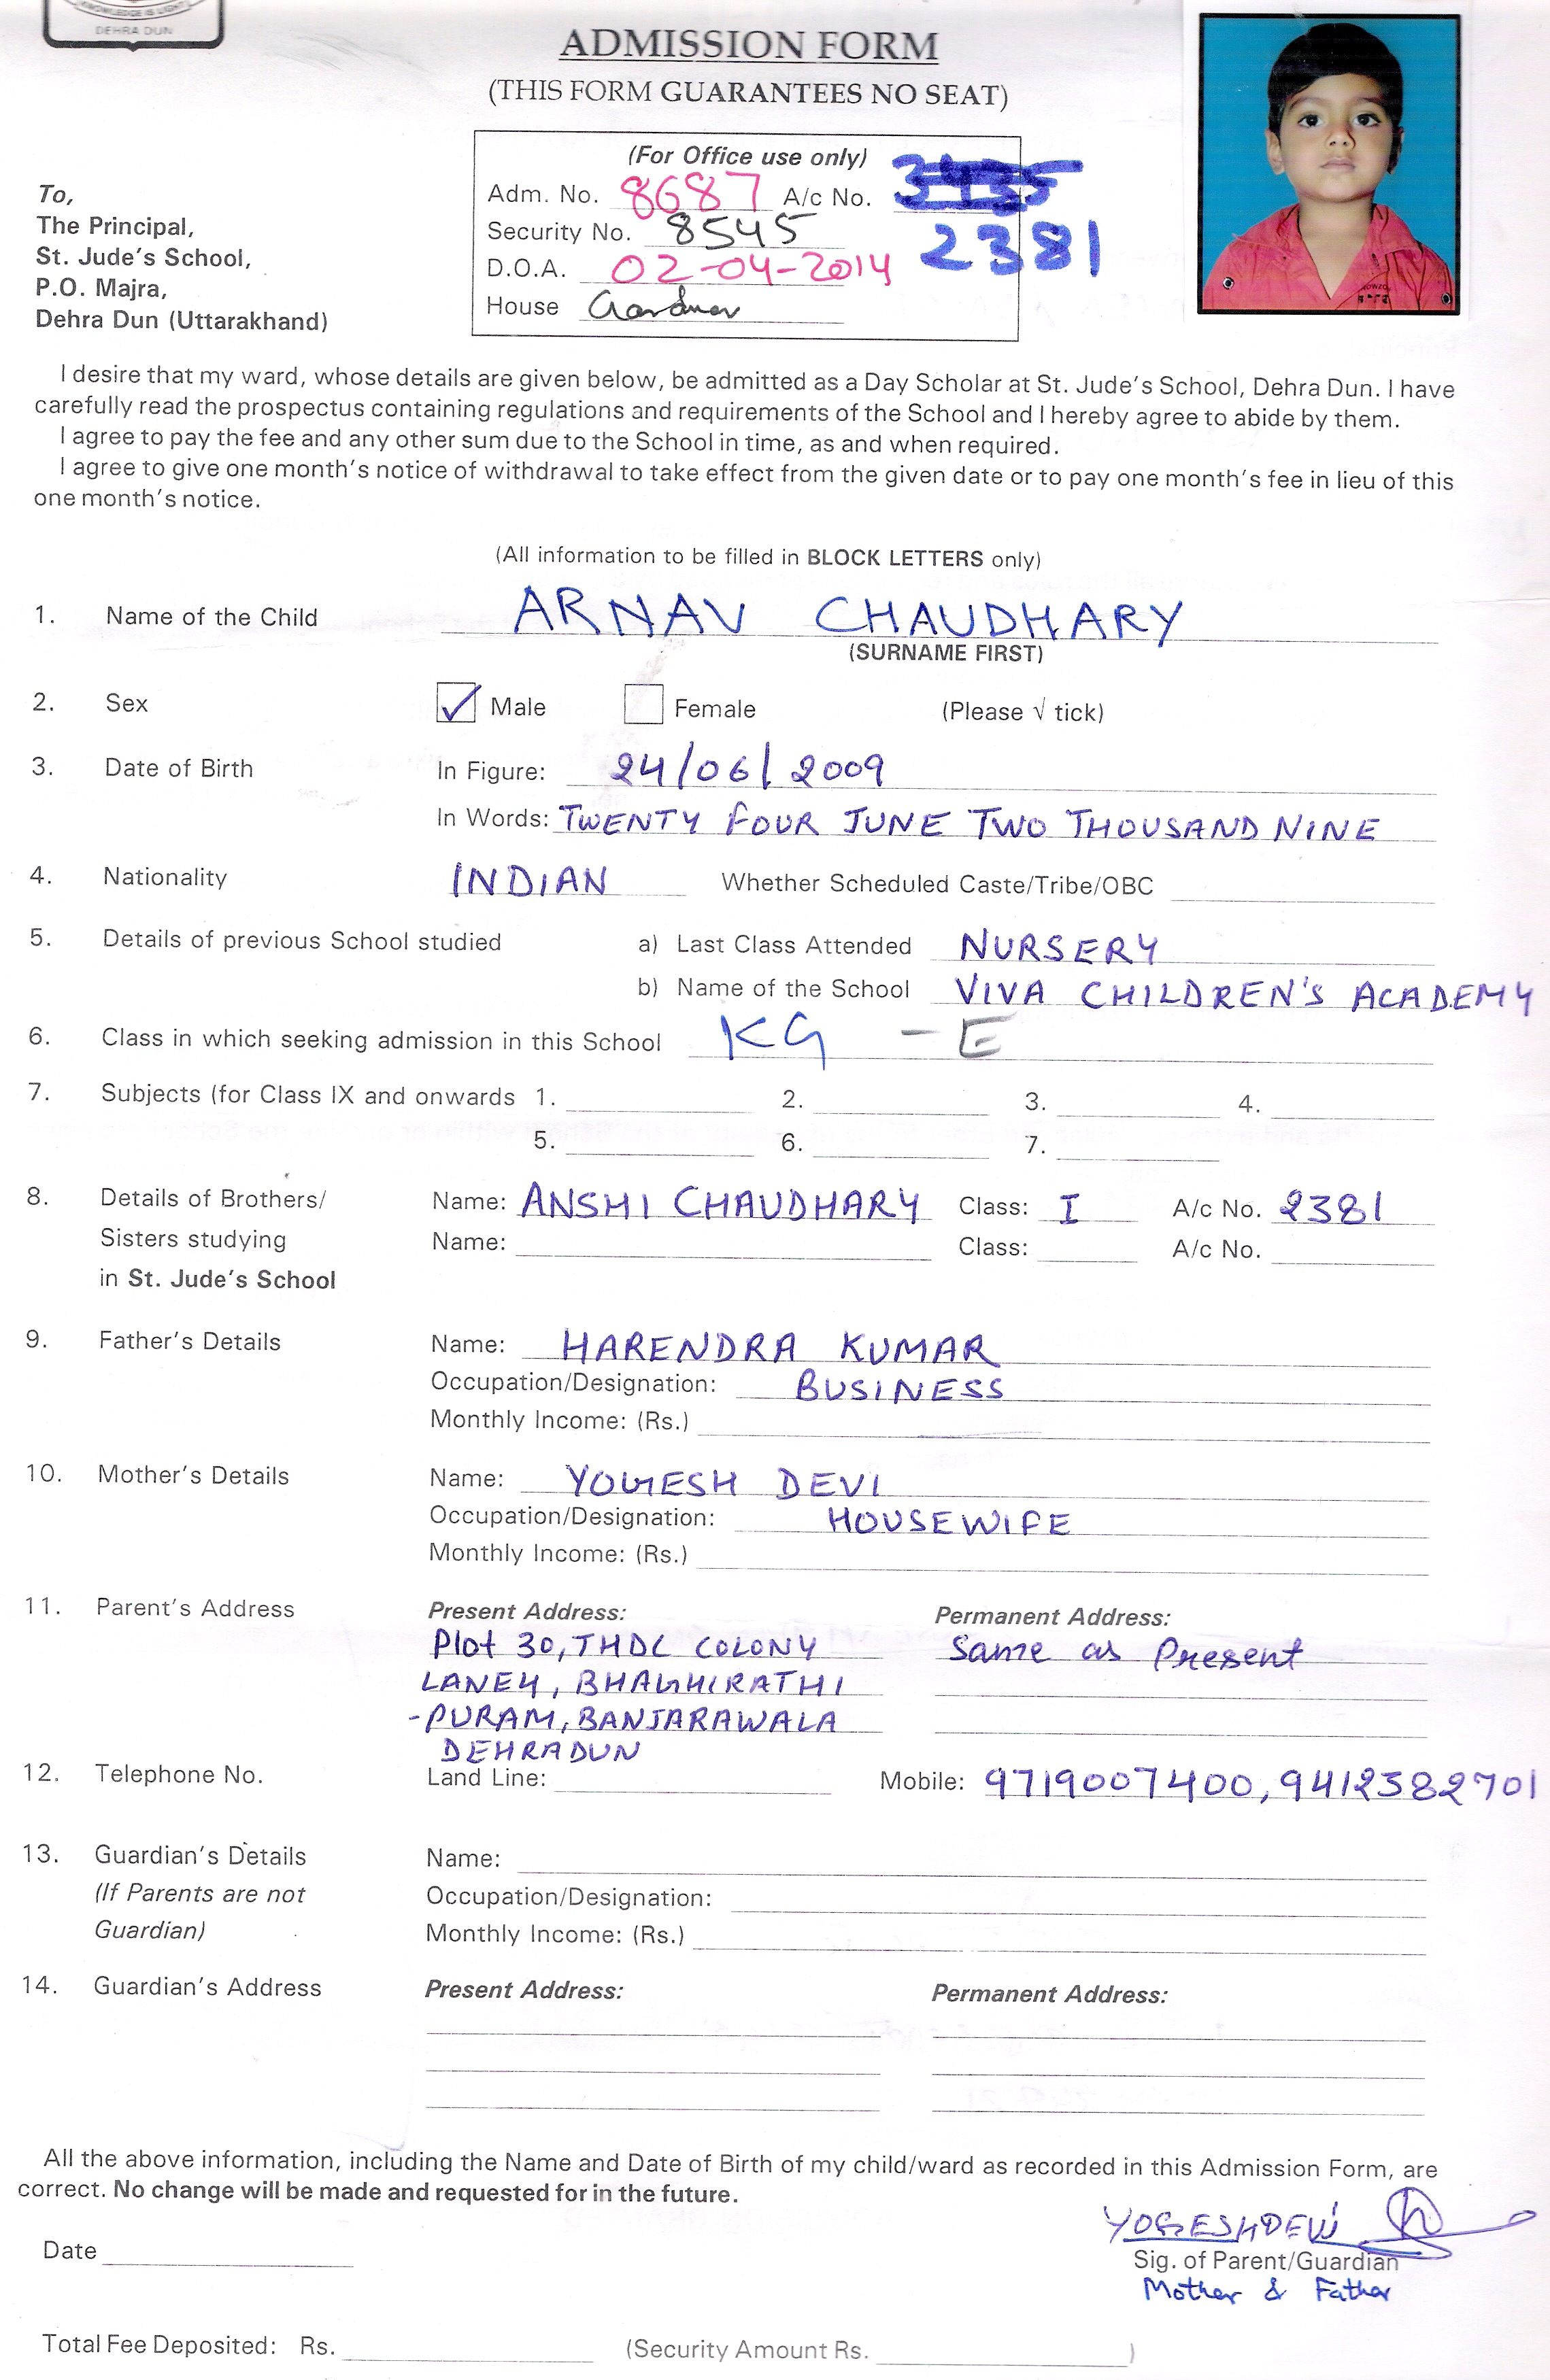 KNOWLEDGE IS LIGHT
DEHRA DUN
ADMISSION FORM
(THIS FORM GUARANTEES NO SEAT)
(For Office use only)
Adm. No. 8687 A/c No.
Security No. 8545 2381
D.O.A. 02-04-2014
House
To,
The Principal,
St. Jude's School,
P.O. Majra,
Dehra Dun (Uttarakhand)
I desire that my ward, whose details are given below, be admitted as a Day Scholar at St. Jude's School, Dehra Dun. I have
carefully read the prospectus containing regulations and requirements of the School and I hereby agree to abide by them.
I agree to pay the fee and any other sum due to the School in time, as and when required.
I agree to give one month's notice of withdrawal to take effect from the given date or to pay one month's fee in lieu of this
one month's notice.
(All information to be filled in BLOCK LETTERS only)
1. Name of the Child ARNAV CHAUDHARY
(SURNAME FIRST)
2. Sex Male Female (Please √ tick)
3. Date of Birth In Figure: 24/06/2009
In Words: TWENTY FOUR JUNE TWO THOUSAND NINE
4. Nationality INDIAN Whether Scheduled Caste/Tribe/OBC
5. Details of previous School studied a) Last Class Attended NURSERY
b) Name of the School VIVA CHILDREN'S ACADEMY
6. Class in which seeking admission in this School KG - E
7. Subjects (for Class IX and onwards 1. 2. 3. 4.
5. 6. 7.
8. Details of Brothers/ Name: ANSHI CHAUDHARY Class: I A/c No. 2381
Sisters studying Name: Class: A/c No.
in St. Jude's School
9. Father's Details Name: HARENDRA KUMAR
Occupation/Designation: BUSINESS
Monthly Income: (Rs.)
10. Mother's Details Name: YOGESH DEVI
Occupation/Designation: HOUSEWIFE
Monthly Income: (Rs.)
11. Parent's Address Present Address: Permanent Address:
Plot 30, THDC COLONY Same as Present
LANE4, BHAGHIRATHI
-PURAM, BANJARAWALA
DEHRADUN
12. Telephone No. Land Line: Mobile: 9719007400, 9412382701
13. Guardian's Details Name:
(If Parents are not Occupation/Designation:
Guardian) Monthly Income: (Rs.)
14. Guardian's Address Present Address: Permanent Address:
All the above information, including the Name and Date of Birth of my child/ward as recorded in this Admission Form, are
correct. No change will be made and requested for in the future.
YOGESHDEVI
Date Sig. of Parent/Guardian
Mother & Father
Total Fee Deposited: Rs. (Security Amount Rs. )